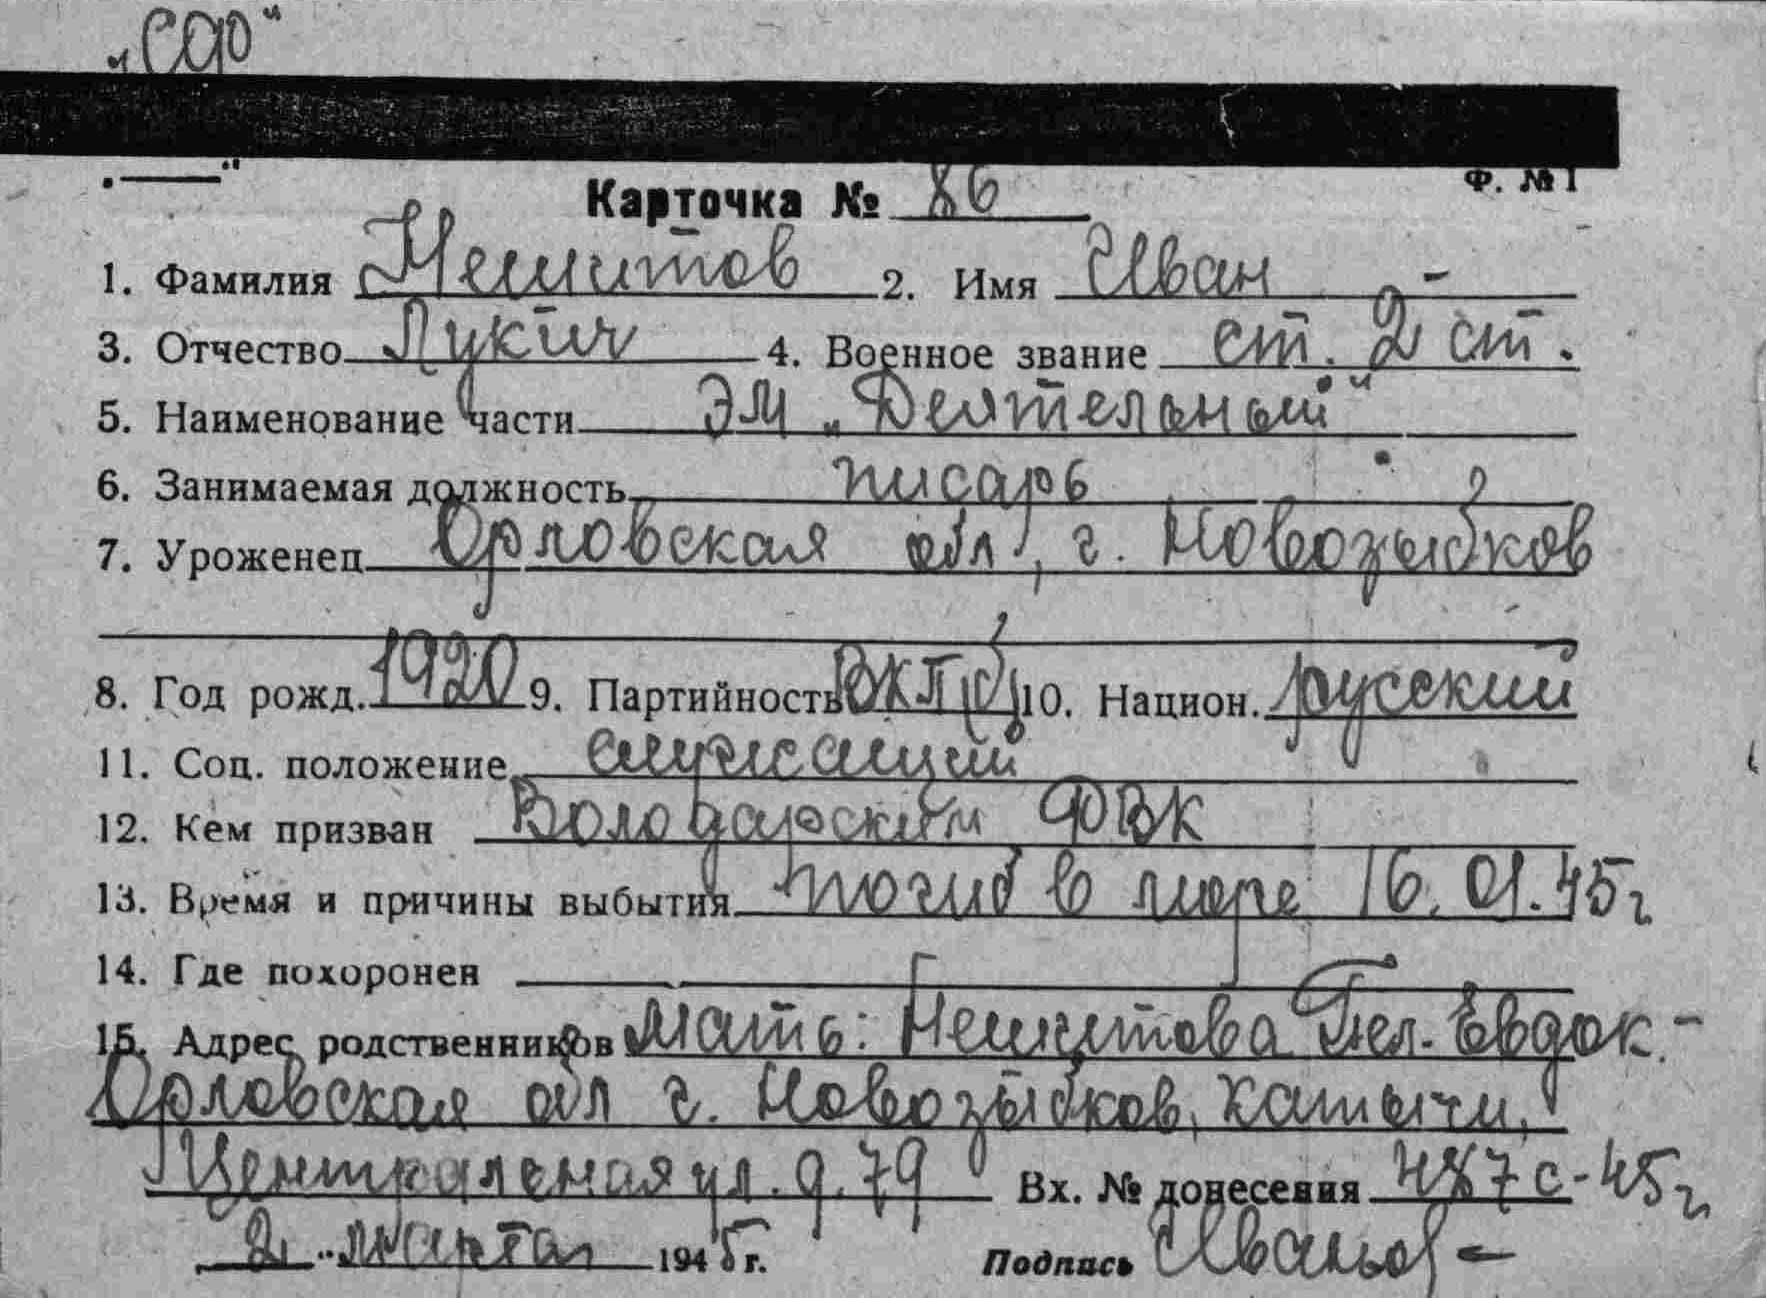 „СФ"
Ф. № 1
Карточка № 86
1. Фамилия Нешитов 2. Имя Иван
3. Отчество Лукич 4. Военное звание ст. 2 ст.
5. Наименование части ЭМ „Деятельный"
6. Занимаемая должность писарь
7. Уроженец Орловская обл, г. Новозыбков
8. Год рожд. 1920 9. Партийность ВКП(б) 10. Национ. русский
11. Соц. положение служащий
12. Кем призван Володарским РВК
13. Время и причины выбытия погиб в море 16.01.45г
14. Где похоронен
15. Адрес родственников Мать: Нешитова Пел. Евдок.-
Орловская обл г. Новозыбков, Катычи,
Центральная ул. д. 79 Вх. № донесения 487с-45г
2 " марта 1945г. Подпись Иванов